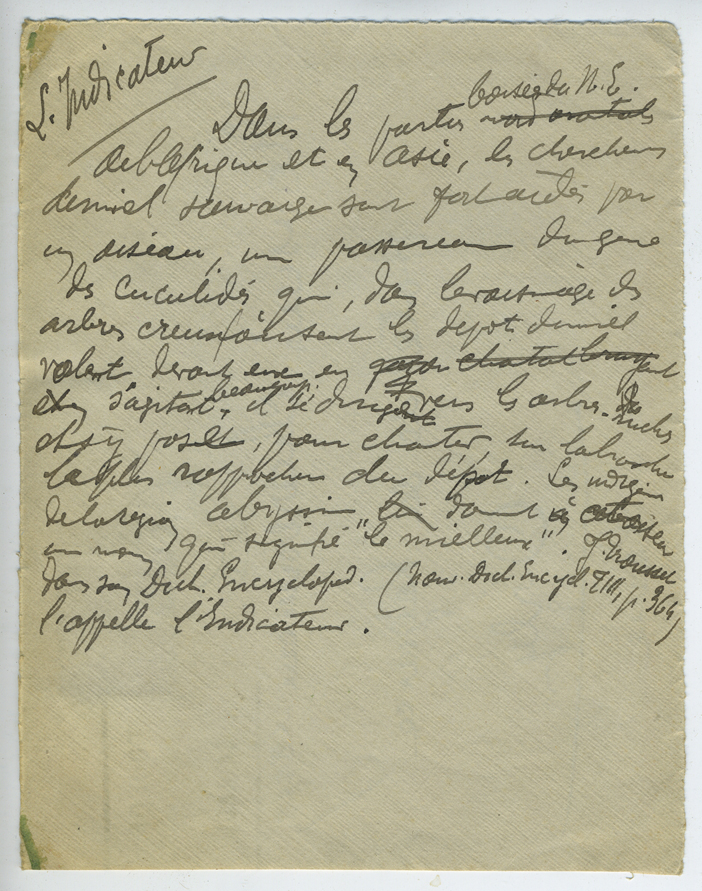 L'Indicateur
boisées du N.E.
Dans les parties nord orientales
de l'Afrique et en Asie, les chercheurs
de miel sauvage sont fort aidés par
un oiseau, un passereau du genre
des Cuculidés qui, dans le voisinage des
arbres creux où sont les dépôt de miel
volent devant eux en chantant
en s'agitant beaucoup, il se dirige vers les arbres-ruches
et s'y pose, pour chanter, sur la branche
la plus rapprochée du dépôt. Les indigènes
de la région abyssin lui donnent à cet oiseau
un nom qui signifie "le mielleux". J. Trousset
dans son Dict. Encycloped. (Nouv. Dict. Encycl. T III, p. 364)
l'appelle l'Indicateur.